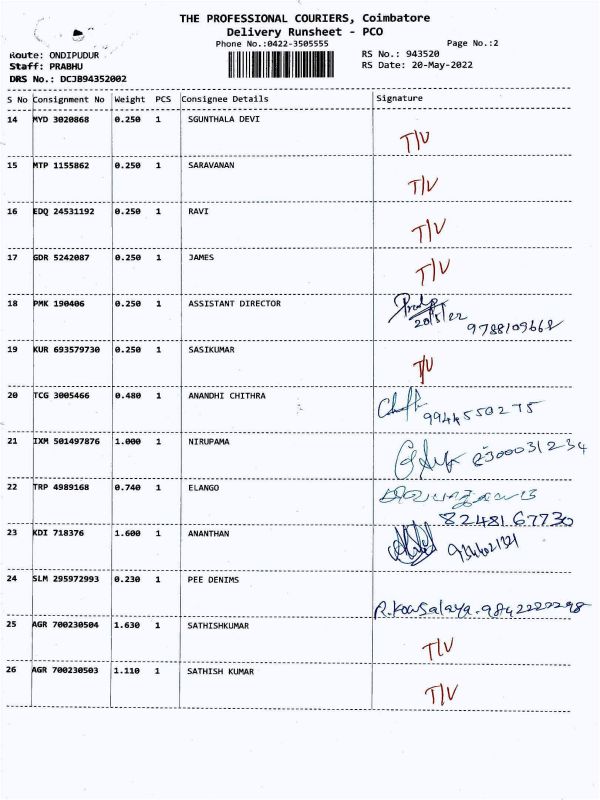 THE PROFESSIONAL COURIERS, Coimbatore
Delivery Runsheet - PCO
Phone No.:0422-3505555
Page No.:2
Route: ONDIPUDUR
RS No.: 943520
Staff: PRABHU
RS Date: 20-May-2022
DRS No.: DCJB94352002
S No Consignment No Weight PCS Consignee Details Signature
14 MYD 3020868 0.250 1 SGUNTHALA DEVI
T/V
15 MTP 1155862 0.250 1 SARAVANAN
T/V
16 EDQ 24531192 0.250 1 RAVI
T/V
17 GDR 5242087 0.250 1 JAMES
T/V
18 PMK 190406 0.250 1 ASSISTANT DIRECTOR
20/5/22
9788109668
19 KUR 693579730 0.250 1 SASIKUMAR
T/V
20 TCG 3005466 0.480 1 ANANDHI CHITHRA
9944550275
21 IXM 501497876 1.000 1 NIRUPAMA
22 TRP 4989168 0.740 1 ELANGO
8248167730
23 KDI 718376 1.600 1 ANANTHAN
24 SLM 295972993 0.230 1 PEE DENIMS
R. Kowsalaya. 9842222298
25 AGR 700230504 1.630 1 SATHISHKUMAR
T/V
26 AGR 700230503 1.110 1 SATHISH KUMAR
T/V